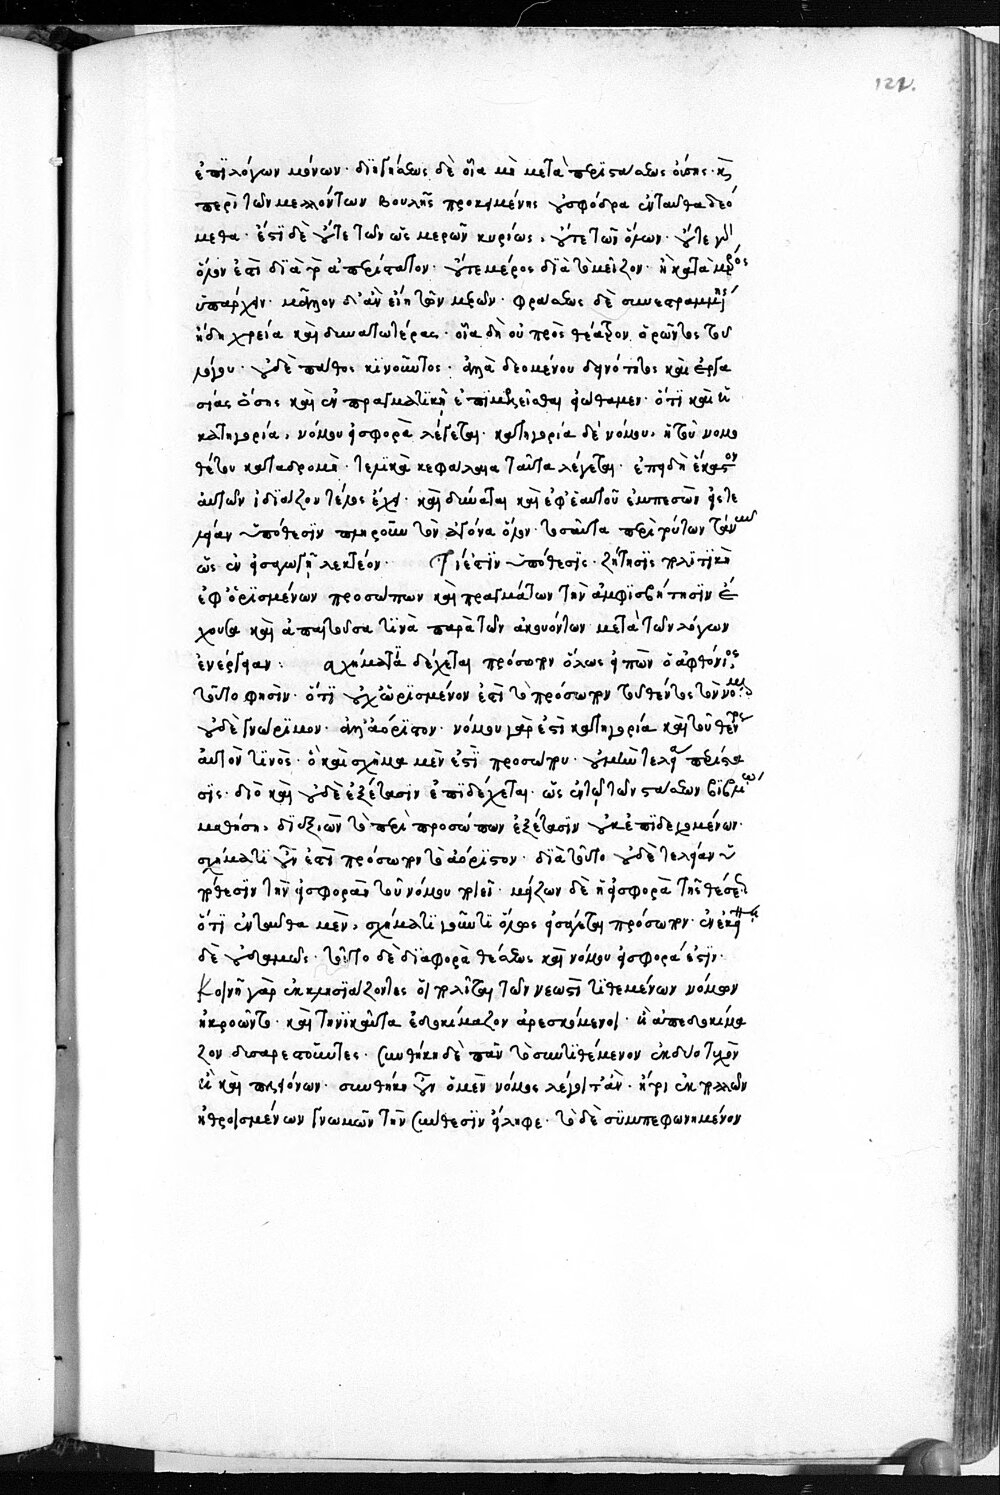 122.
ἐπιλόγων μόνων· διηγήσεως δὲ οἷα μὴ μετὰ περιστάσεως οὔσης· κ
περὶ τῶν μελλόντων βουλῆς προκειμένης οὐ σφόδρα ἐνταῦθα δεό
μεθα· ἔστι δὲ οὔτε τῶν ὡς μερῶν κυρίως, οὔτε τῶν ὅλων· οὔτε γὰρ
ὅλον ἐστὶ διὰ τὸ ἀπερίστατον· οὔτε μέρος διὰ τὸ μεῖζον ἢ κατὰ μέρος
ὑπάρχειν· μᾶλλον δ' ἂν εἴη τῶν μερῶν· φράσεως δὲ συνεστραμμένης
ἤδη χρεία καὶ δυνατωτέρας· οἷα δὴ οὐ πρὸς θέατρον ὁρῶντος τοῦ
λόγου· οὐδὲ πάθος κινοῦντος· ἀλλὰ δεομένου δεινότητος καὶ ἐργα
σίας ὅσης καὶ ἐν πραγματικῇ ἐπιμελεῖσθαι εἰώθαμεν· ὅτι καὶ ἡ
κατηγορία, νόμου εἰσφορὰ λέγεται· κατηγορία δὲ νόμου, ἡ τοῦ νομο
θέτου καταδρομή· τελικὰ κεφάλαια ταῦτα λέγεται· ἐπειδὴ ἕκαστον
αὐτῶν ἰδιάζον τέλος ἔχει· καὶ δύναται καὶ ἐφ' ἑαυτοῦ ἐμπεσὼν εἴς τε
λείαν ὑπόθεσιν πληροῦν τὸν ἀγῶνα ὅλον· τοσαῦτα περὶ τούτων τανῦν
ὡς ἐν εἰσαγωγῇ λεκτέον· Τί ἐστιν ὑπόθεσις· ζήτησις πολιτικὴ
ἐφ' ὡρισμένων προσώπων καὶ πραγμάτων τὴν ἀμφισβήτησιν ἔ
χουσα καὶ ἀπαιτοῦσα τινὰ παρὰ τῶν ἀκουόντων μετὰ τῶν λόγων
ἐνέργειαν: σχήματι δέχεται πρόσωπον ὅλως εἰπὼν ὁ ἀφθόνιος
τοῦτο φησὶν· ὅτι οὐχ ὡρισμένον ἐστὶ τὸ πρόσωπον τοῦ θέντος τὸν νόμον
οὐδὲ γνώριμον· ἀλλ' ἀόριστον· νόμου γάρ ἐστι κατηγορία καὶ τοῦ θέντος
αὐτὸν τινός· ὃ καὶ σχῆμα μέν ἐστι προσώπου· οὐ μὴν τελεία περίστα
σις· διὸ καὶ οὐδὲ ἐξέτασιν ἐπιδέχεται· ὡς ἐν τῷ τῶν στάσεων βιβλίῳ
μαθήσῃ, διεξιὼν τὸ περὶ προσώπων ἐξέτασιν οὐκ ἐπιδεχομένων·
σχήματι οὖν ἐστι πρόσωπον τὸ ἀόριστον· διὰ τοῦτο οὐδὲ τελείαν ὑ
πόθεσιν τὴν εἰσφορὰν τοῦ νόμου ποιεῖ· μείζων δὲ ἡ εἰσφορὰ τῆς θέσεως
ὅτι ἐνταῦθα μὲν, σχήματι γοῦν τι ὅλως εἰσάγεται πρόσωπον· ἐν ἐκείνῃ
δὲ οὐδαμῶς· τοῦτο δὲ διαφορὰ θέσεως καὶ νόμου εἰσφορά ἐστιν·
Κοινῇ γὰρ ἐκκλησιάζοντες οἱ πολῖται τῶν νεωστὶ τιθεμένων νόμων
ἠκροῶντο· καὶ τηνικαῦτα ἐδοκίμαζον ἀρεσκόμενοι· ἢ ἀπεδοκίμα
ζον δυσαρεστοῦντες· Συνθήκη δὲ πᾶν τὸ συντιθέμενον ἐκ δυο τυχὸν
ἢ καὶ πλειόνων· συνθήκη οὖν ὁ μὲν νόμος λέγοιτ' ἂν· ἤτοι ἐκ πολλῶν
ἠθροισμένων γνωμῶν τὴν σύνθεσιν εἴληφε· τὸ δὲ συμπεφωνημένον